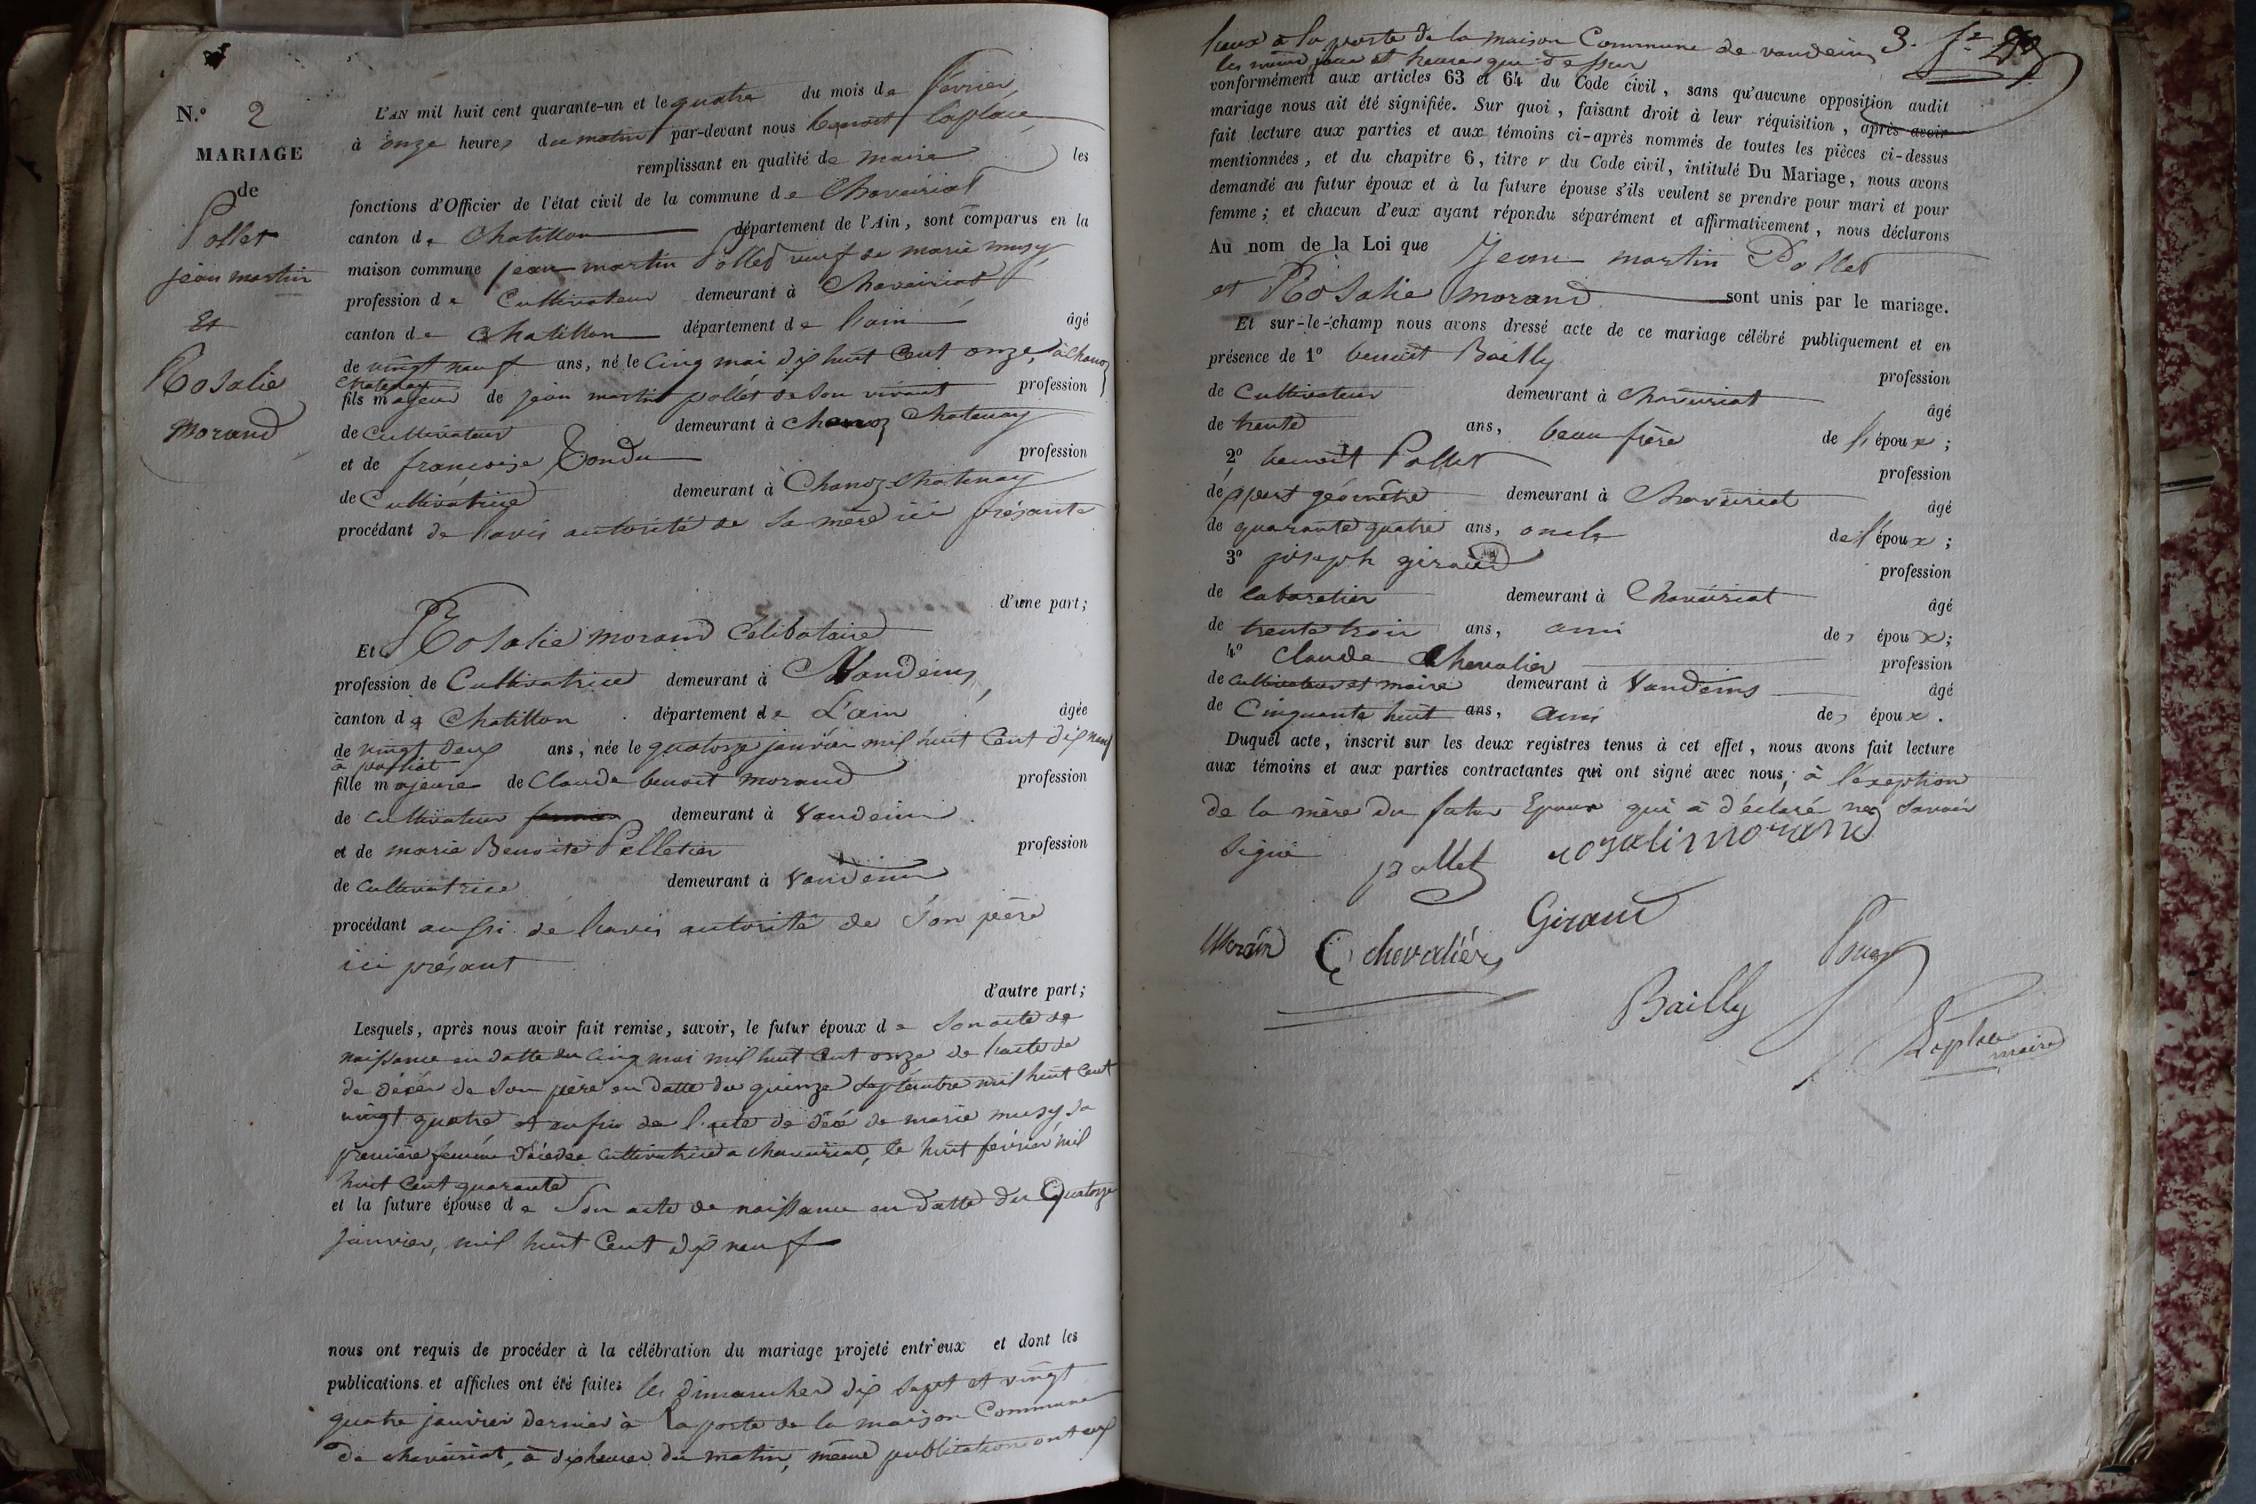 N.º 2
MARIAGE
de
Pollet
jean martin
Et
Rosalie
Morand
L'AN mil huit cent quarante-un et le quatre du mois de février
à onze heures du matin par-devant nous benoit laplace
remplissant en qualité de maire les
fonctions d'Officier de l'état civil de la commune de Chaveiriat
canton de Chatillon département de l'Ain, sont comparus en la
maison commune jean martin Pollet veuf de marie musy
profession de Cultivateur demeurant à Chaveiriat
canton de Chatillon département de l'ain âgé
de vingt neuf ans, né le Cinq mai dix huit Cent onze, à Chanoz
Chatenay
fils majeur de jean martin pollet de son vivant profession
de Cultivateur demeurant à Chanoz Chatenay
et de françoise Tondu profession
de Cultivatrice demeurant à Chanoz-Chatenay
procédant de l'avis autorité de sa mère ici présante
d'une part;
Et Rosalie morand Célibataire
profession de Cultivatrice demeurant à Vandeins
canton de Chatillon département de L'ain âgée
de vingt deux ans, née le quatorze janvier mil huit Cent dix neuf
à
fille majeure de Claude benoit morand profession
de Cultivateur demeurant à Vandeins
et de marie Benoite Pelletier profession
de Cultivatrice demeurant à Vandeins
procédant aussi de l'avis autorité de son père
ici présant
d'autre part;
Lesquels, après nous avoir fait remise, savoir, le futur époux de son acte de
naissance en datte du cinq mai mil huit Cent onze de l'acte de
de décés de son père en datte du quinze septembre mil huit Cent
vingt quatre et aussi de l'acte de décé de marie musy sa
première femme décédée Cultivatrice a chaveiriat, le huit février mil
huit Cent quarante
et la future épouse de Son acte de naissance en datte du Quatorze
janvier, mil huit Cent dix neuf
nous ont requis de procéder à la célébration du mariage projeté entr'eux et dont les
publications et affiches ont été faites les dimanches dix sept et vingt
quatre janvier dernier à la porte de la maison Commune
de chaveiriat, à dix heures du matin, même publications ont eux
lieux à la porte de la maison Commune de vandeins 3.
les même jour et heures que dessus
conformément aux articles 63 et 64 du Code civil, sans qu'aucune opposition audit
mariage nous ait été signifiée. Sur quoi, faisant droit à leur réquisition, après avoir
fait lecture aux parties et aux témoins ci-après nommés de toutes les pièces ci-dessus
mentionnées, et du chapitre 6, titre v du Code civil, intitulé Du Mariage, nous avons
demandé au futur époux et à la future épouse s'ils veulent se prendre pour mari et pour
femme; et chacun d'eux ayant répondu séparément et affirmativement, nous déclarons
Au nom de la Loi que Jean martin Pollet
et Rosalie morand sont unis par le mariage.
Et sur-le-champ nous avons dressé acte de ce mariage célébré publiquement et en
présence de 1º benoit Bailly profession
de Cultivateur demeurant à Chaveiriat âgé
de trente ans, beau frère de l'époux;
2º benoit Pollet profession
de expert géomètre demeurant à Chaveiriat âgé
de quarante quatre ans, oncle de l'époux;
3º joseph giraud profession
de cabaretier demeurant à Chaveiriat âgé
de trente trois ans, ami des époux;
4º Claude Chevalier profession
de Cultivateur et maire demeurant à Vandeins âgé
de Cinquante huit ans, ami des époux.
Duquel acte, inscrit sur les deux registres tenus à cet effet, nous avons fait lecture
aux témoins et aux parties contractantes qui ont signé avec nous, à l'exeption
de la mère du futur Epoux qui à déclaré ne savoir
signé pollet rosali morand
Giraud
C chevaliér
Bailly
Laplace
maire